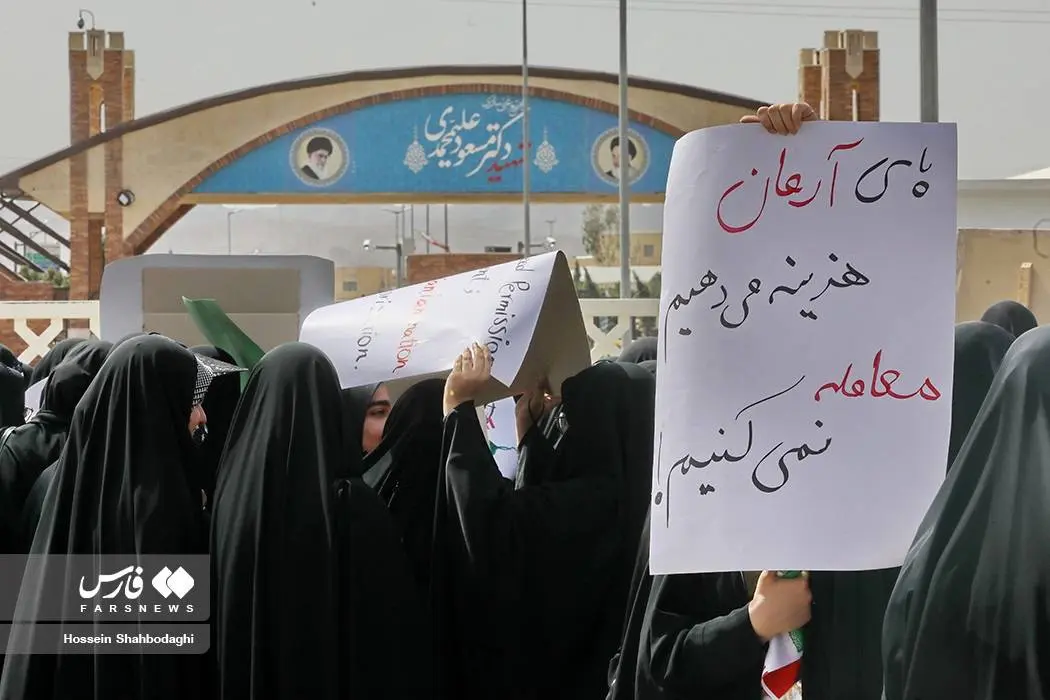 شهید دکتر مسعود علیمحمدی
پای آرمان
هزینه می‌دهیم
معامله
نمی‌کنیم!
Permission
nation
فارس
FARSNEWS
Hossein Shahbodaghi